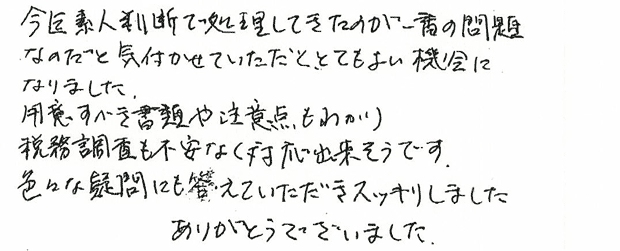 今迄素人判断で処理してきたのが一番の問題
なのだと気付かせていただとてもよい機会に
なりました.
用意すべき書類や注意点もわかり
税務調査も不安なく対応出来そうです.
色々な疑問にも答えていただきスッキリしました
ありがとうございました.